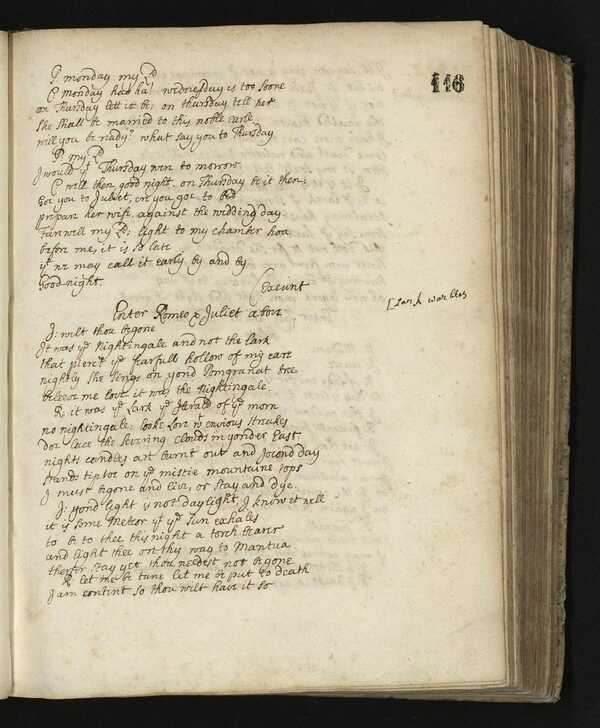 116
P. monday my Ld
C monday ha ha! wednesday is too soone
on Thursday lett it be, on thursday tell her
she shall be married to this noble earle
will you be ready? what say you to Thursday
P. my Ld
I would yt Thursday were to morrow.
C well then good night. on Thursday be it then:
Goe you to Juliet, ere you goe to bed
prepare her wife against the wedding day
Farewell my Ld: light to my chamber hoa
before me, it is so late
yt we may call it early by and by
Good-night.
Exeunt
Enter Romeo & Juliet above
[Lark warbles
J: wilt thou begone
It was ye Nightingale and not the lark
that pierc't ye fearfull hollow of my eare
nightly she sings on yond Pomgranat tree
beleeve me love it was the Nightingale.
R: it was ye Lark ye Herald of ye morn
no nightingale: looke Love wt envious streakes
doe lace the severing clouds in yonder East
nights candles are burnt out and Jocond day
stands tiptoe on ye mistie mountaine tops
I must begone and live, or stay and dye.
J: yond light is not daylight, I know it well
it is some Meteor yt ye Sun exhales
to be to thee this night a torch bearer
and light thee on thy way to Mantua
therfor stay yet thou needest not be gone
R let me be tane let me be put to death
I am content so thou wilt have it so